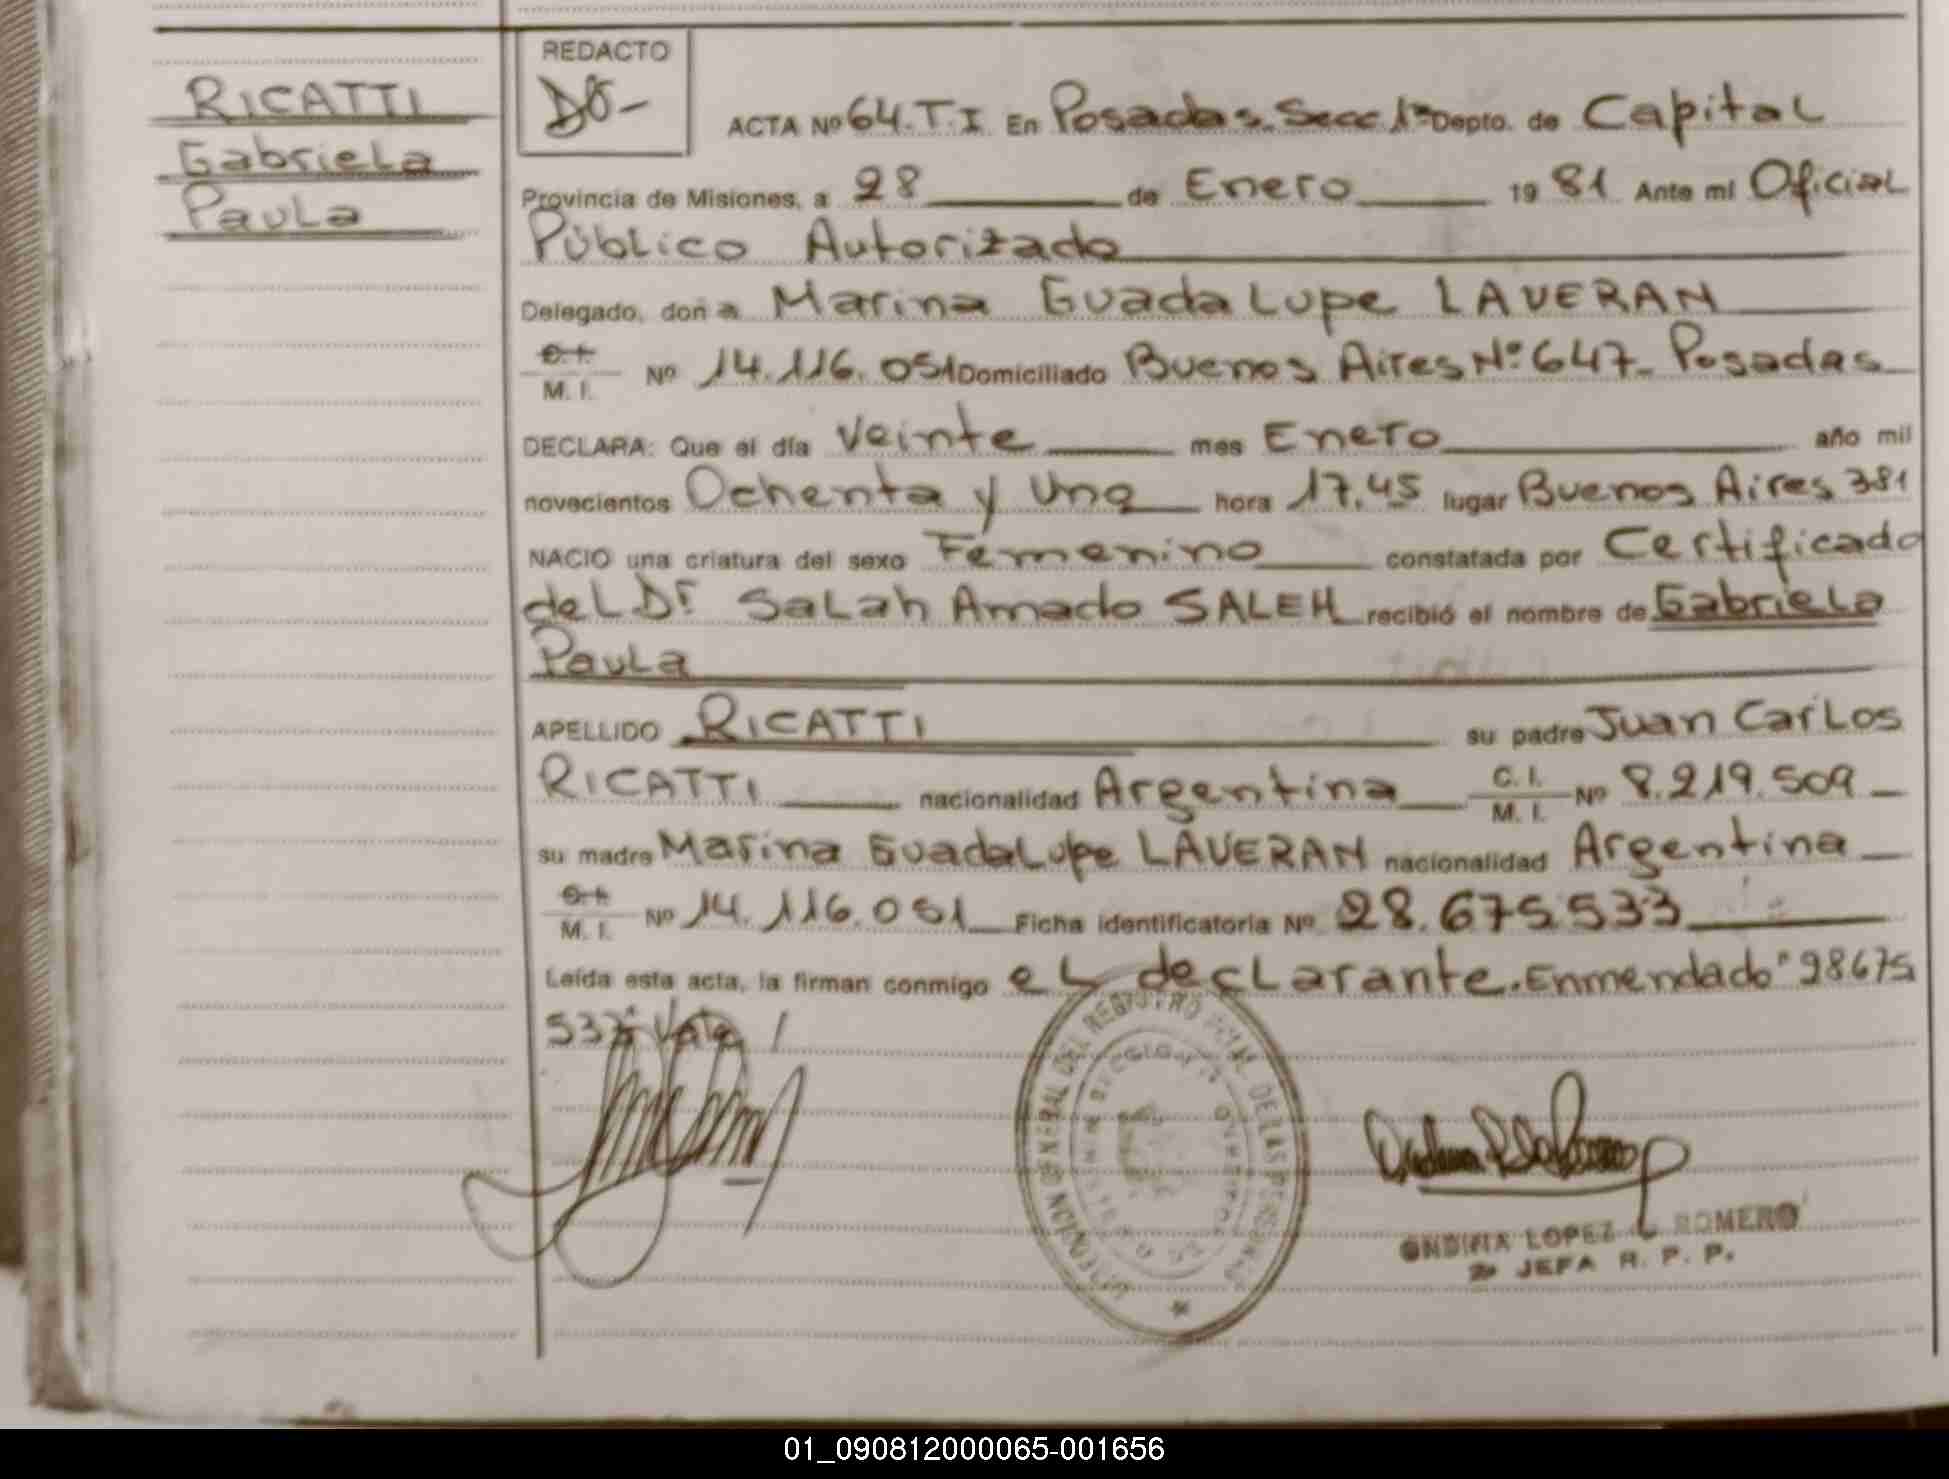 RICATTI
Gabriela
Paula
REDACTO
ACTA Nº 64.T.I En Posadas. Secc 1ª Depto. de Capital
Provincia de Misiones, a 28 de Enero 19 81 Ante mí Oficial
Público Autorizado
Delegado, doña Marina Guadalupe LAVERAN
C. I.
M. I. Nº 14.116.051 Domiciliado Buenos Aires Nº 647- Posadas
DECLARA: Que el día Veinte mes Enero año mil
novecientos Ochenta y Uno hora 17.45 lugar Buenos Aires 381
NACIO una criatura del sexo Femenino constatada por Certificado
del Dr. Salah Amado SALEH recibió el nombre de Gabriela
Paula
APELLIDO RICATTI su padre Juan Carlos
RICATTI nacionalidad Argentina C. I. M. I. Nº 8.219.509
su madre Marina Guadalupe LAVERAN nacionalidad Argentina
C. I.
M. I. Nº 14.116.051 Ficha identificatoria Nº 28.675.533
Leída esta acta, la firman conmigo el declarante. Enmendado "28675
533" Vale
LOPEZ ROMERO
JEFA R. P. P.
01_090812000065-001656